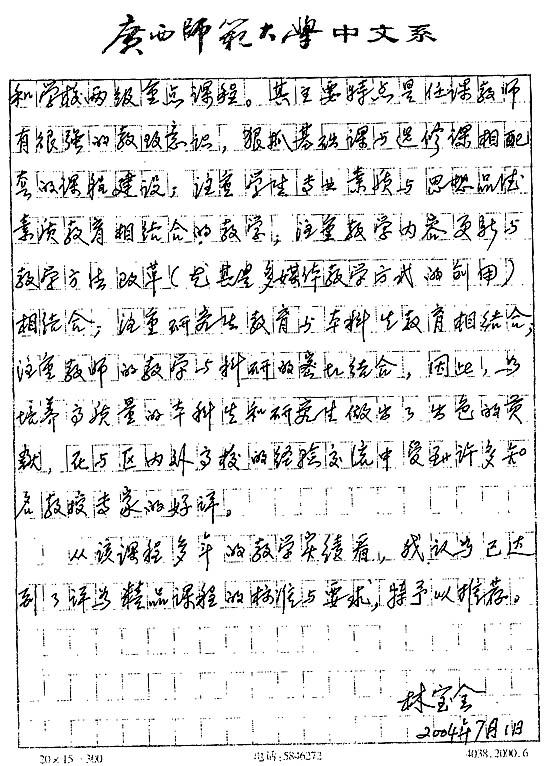 廣西師範大學中文系
和学校两级重点课程。其主要特点是任课教师
有很强的教改意识，狠抓基础课与选修课相配
套的课程建设；注重学生专业素质与思想品德
素质教育相结合的教学，注重教学内容更新与
教学方法改革（尤其是多媒体教学方式的利用）
相结合；注重研究生教育与本科生教育相结合；
注重教师的教学与科研的密切结合，因此，为
培养高质量的本科生和研究生做出了出色的贡
献，在与区内外高校的经验交流中受到许多知
名教授专家的好评。
从该课程多年的教学实绩看，我认为已达
到了评为精品课程的标准与要求，特予以推荐。
林宝全
2004年7月1日
20×15=300 电话:5846272 4038.2000.6